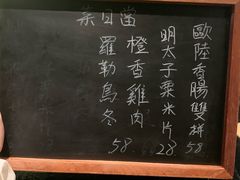 歐陸香腸雙拼 58.
明太子粟米片 28.
橙香雞肉
羅勒烏冬 58.
菜日當